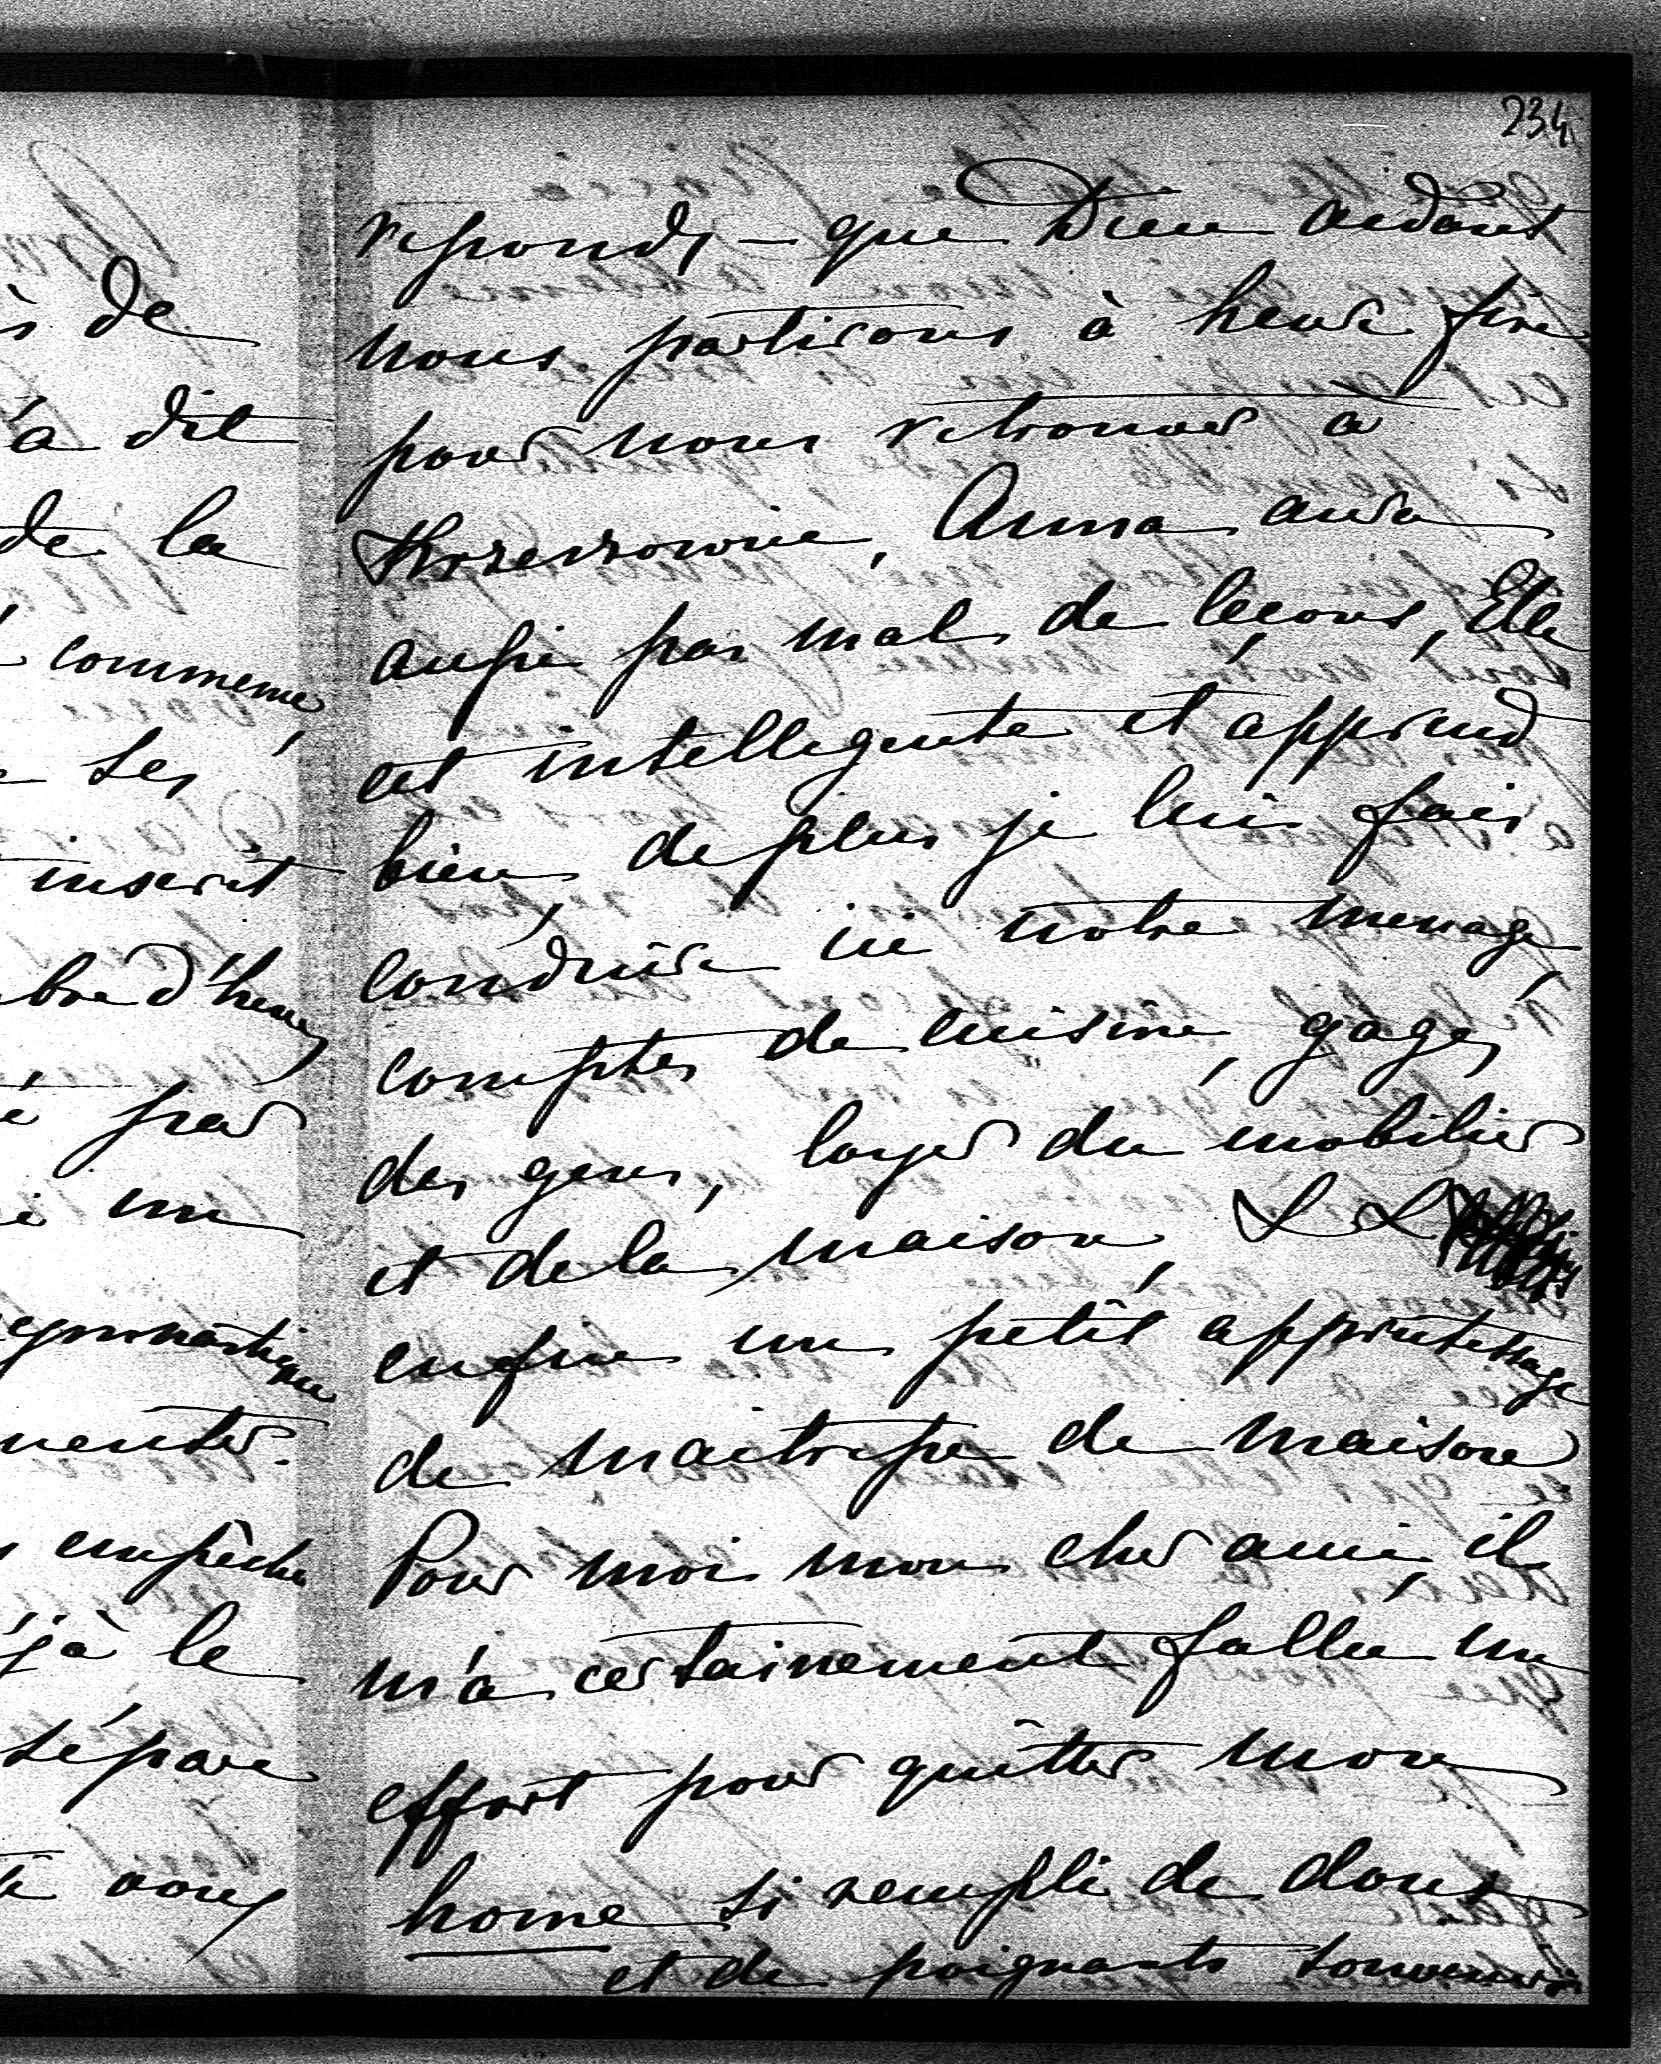 234
reponds — que Dieu aidant
nous partirons à heure fixe
pour nous retrouver à
Krzeszowie, Anna aura
aussi pas mal de leçons, Elle
est intelligente et apprend
bien, de plus je lui fais
conduire ici notre menage,
comptes de cuisine, gages
des gens, loyer du mobilier
et de la maison, & &
enfin un petit apprentissage
de maitresse de maison
Pour moi mon cher ami, il
m'a certainement fallu un
effort pour quitter mon
home si rempli de doux
et de poignants souvenirs
s de
a dit
de la
commence,
ses
inscrit
bre d'heures
par
un
gymnastique
menter.
empêche
jà le
sépare
à vous